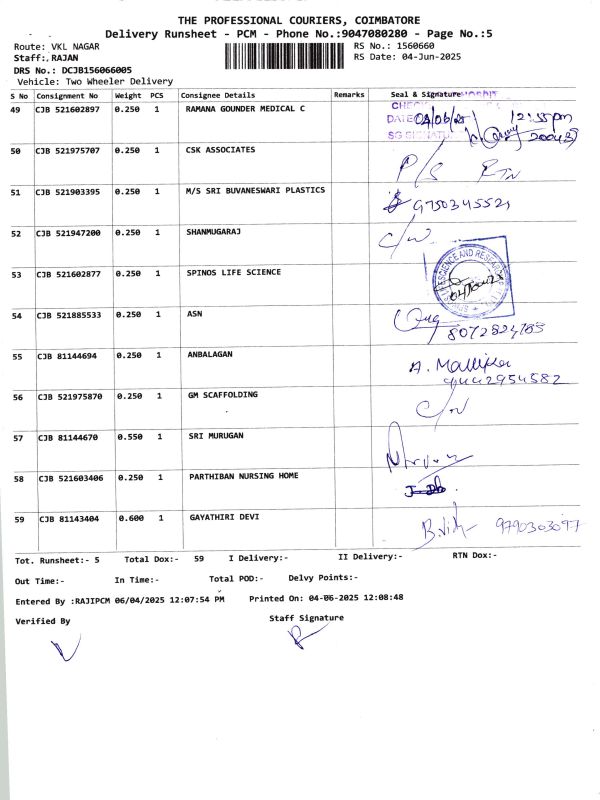 THE PROFESSIONAL COURIERS, COIMBATORE
Delivery Runsheet - PCM - Phone No.:9047080280 - Page No.:5
Route: VKL NAGAR RS No.: 1560660
Staff: RAJAN RS Date: 04-Jun-2025
DRS No.: DCJB156066005
Vehicle: Two Wheeler Delivery
S No Consignment No Weight PCS Consignee Details Remarks Seal & Signature
49 CJB 521602897 0.250 1 RAMANA GOUNDER MEDICAL C
DATE 04/06/25 12:55pm
50 CJB 521975707 0.250 1 CSK ASSOCIATES P/S RTN
51 CJB 521903395 0.250 1 M/S SRI BUVANESWARI PLASTICS
52 CJB 521947200 0.250 1 SHANMUGARAJ C/N
53 CJB 521602877 0.250 1 SPINOS LIFE SCIENCE
54 CJB 521885533 0.250 1 ASN
55 CJB 81144694 0.250 1 ANBALAGAN A. Mallika
9442954582
56 CJB 521975870 0.250 1 GM SCAFFOLDING C/N
57 CJB 81144670 0.550 1 SRI MURUGAN
58 CJB 521603406 0.250 1 PARTHIBAN NURSING HOME
59 CJB 81143404 0.600 1 GAYATHIRI DEVI 9790303097
Tot. Runsheet:- 5 Total Dox:- 59 I Delivery:- II Delivery:- RTN Dox:-
Out Time:- In Time:- Total POD:- Delvy Points:-
Entered By :RAJIPCM 06/04/2025 12:07:54 PM Printed On: 04-06-2025 12:08:48
Verified By Staff Signature